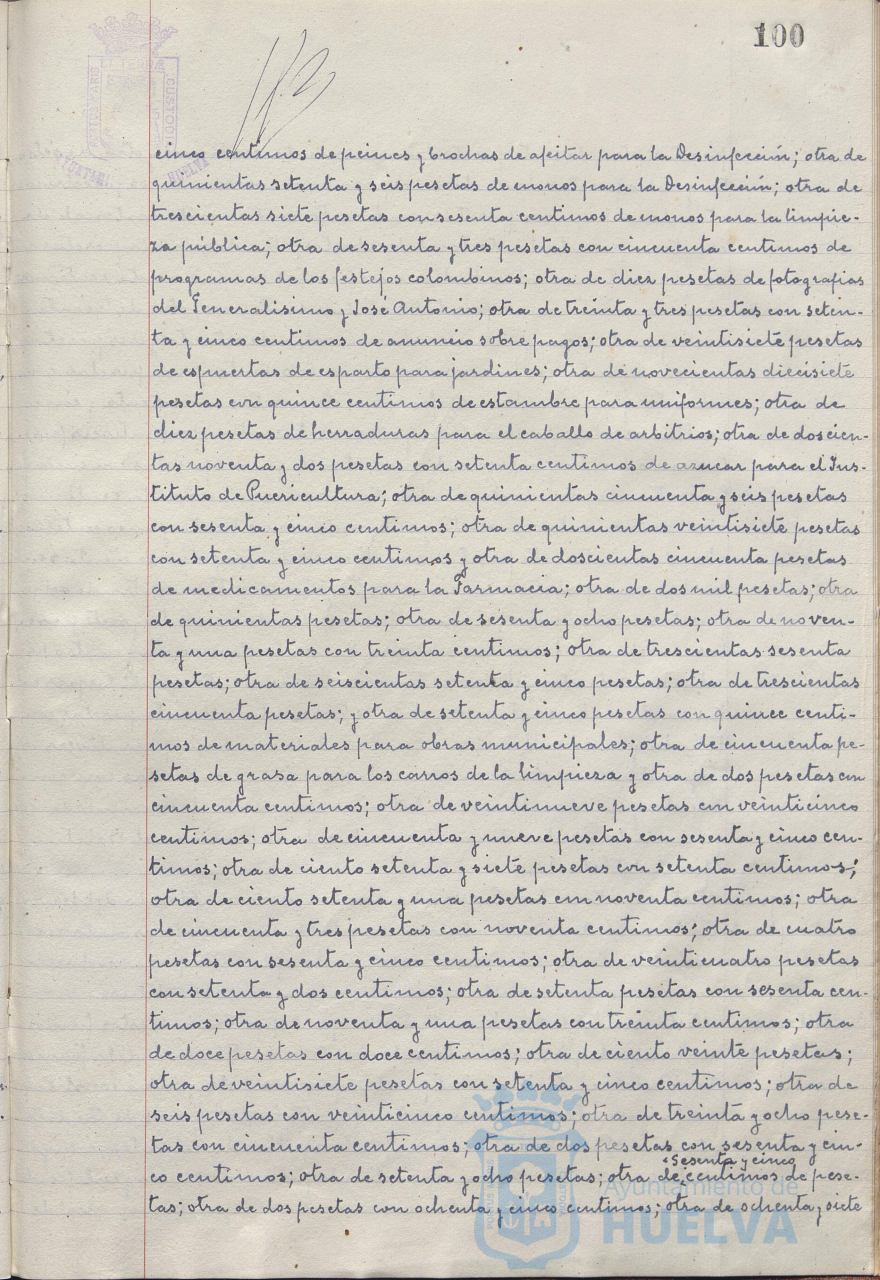 100
cinco centimos de peines y brochas de afeitar para la Desinfección; otra de
quinientas setenta y seis pesetas de monos para la Desinfección; otra de
trescientas siete pesetas con sesenta centimos de monos para la limpie-
za pública; otra de sesenta y tres pesetas con cincuenta centimos de
programas de los festejos colombinos; otra de diez pesetas de fotografias
del Generalisimo y José Antonio; otra de treinta y tres pesetas con seten-
ta y cinco centimos de anuncio sobre pagos; otra de veintisiete pesetas
de espuertas de esparto para jardines; otra de novecientas diecisiete
pesetas con quince centimos de estambre para uniformes; otra de
diez pesetas de herraduras para el caballo de arbitrios; otra de doscien-
tas noventa y dos pesetas con setenta centimos de azucar para el Ins-
tituto de Puericultura; otra de quinientas cincuenta y seis pesetas
con sesenta y cinco centimos; otra de quinientas veintisiete pesetas
con setenta y cinco centimos y otra de doscientas cincuenta pesetas
de medicamentos para la Farmacia; otra de dos mil pesetas; otra
de quinientas pesetas; otra de sesenta y ocho pesetas; otra de noven-
ta y una pesetas con treinta centimos; otra de trescientas sesenta
pesetas; otra de seiscientas setenta y cinco pesetas; otra de trescientas
cincuenta pesetas; y otra de setenta y cinco pesetas con quince centi-
mos de materiales para obras municipales; otra de cincuenta pe-
setas de grasa para los carros de la limpieza y otra de dos pesetas con
cincuenta centimos; otra de veintinueve pesetas con veinticinco
centimos; otra de cincuenta y nueve pesetas con sesenta y cinco cen-
timos; otra de ciento setenta y siete pesetas con setenta centimos;
otra de ciento setenta y una pesetas con noventa centimos; otra
de cincuenta y tres pesetas con noventa centimos; otra de cuatro
pesetas con sesenta y cinco centimos; otra de veinticuatro pesetas
con setenta y dos centimos; otra de setenta pesetas con sesenta cen-
timos; otra de noventa y una pesetas con treinta centimos; otra
de doce pesetas con doce centimos; otra de ciento veinte pesetas;
otra de veintisiete pesetas con setenta y cinco centimos; otra de
seis pesetas con veinticinco centimos; otra de treinta y ocho pese-
tas con cincuenta centimos; otra de dos pesetas con sesenta y cin-
sesenta y cinco
co centimos; otra de setenta y ocho pesetas; otra de centimos de pese-
tas; otra de dos pesetas con ochenta y cinco centimos; otra de ochenta y siete
Ayuntamiento de
HUELVA